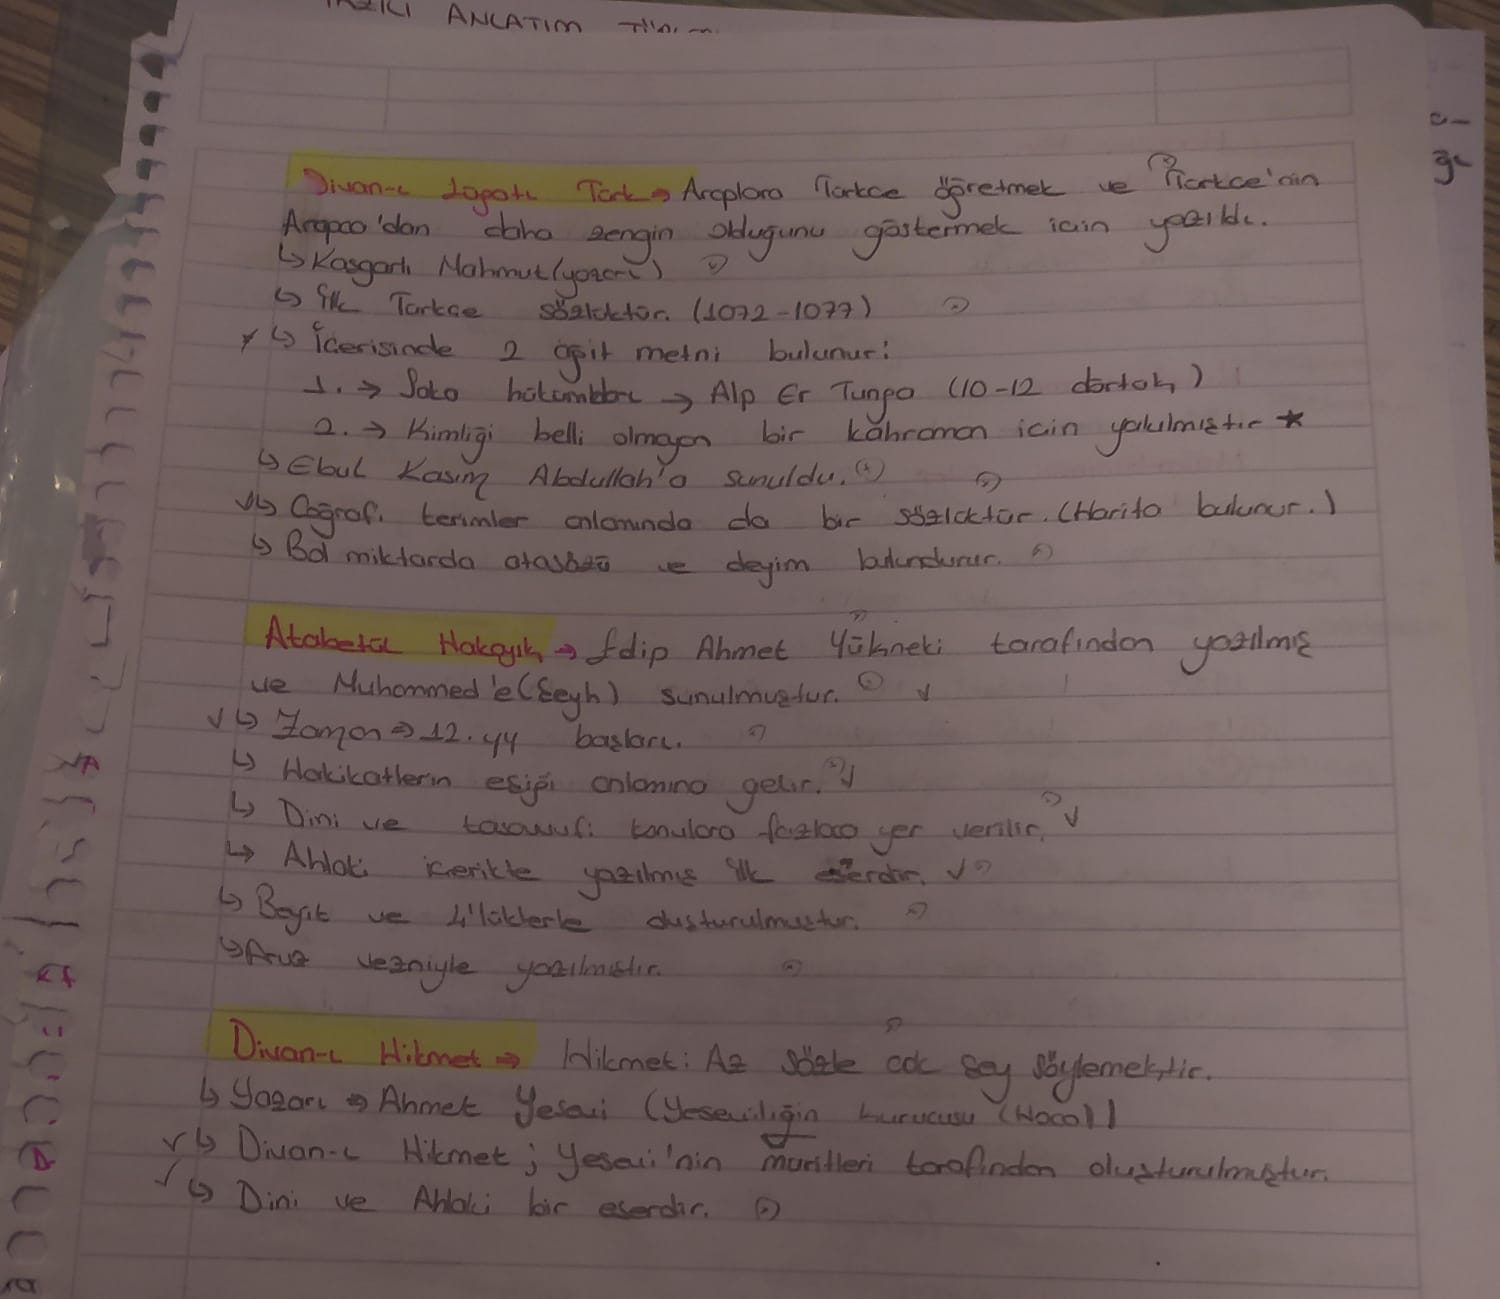 YAZILI ANLATIM
Divan-ı Lügati Türk → Araplara Türkçe öğretmek ve Türkçe'nin
Arapça'dan daha zengin olduğunu göstermek için yazıldı.
↳ Kaşgarlı Mahmut (yazarı)
↳ İlk Türkçe sözlüktür. (1072-1077)
↳ İçerisinde 2 öğit metni bulunur:
1. → Saka hükümdarı → Alp Er Tunga (10-12 dörtlük)
2. → Kimliği belli olmayan bir kahraman için yakılmıştır ★
↳ Ebul Kasım Abdullah'a sunuldu.
↳ Coğrafi terimler anlamında da bir sözlüktür. (Harita bulunur.)
↳ Bol miktarda atasözü ve deyim bulundurur.
Atabetül Hakayık → Edip Ahmet Yükneki tarafından yazılmış
ve Muhammed'e (Şeyh) sunulmuştur. ✓
✓ ↳ Zaman → 12. yy başları.
↳ Hakikatlerin eşiği anlamına gelir. ✓
↳ Dini ve tasavvufi konulara fazlaca yer verilir. ✓
↳ Ahlaki içerikte yazılmış ilk eserdir. ✓
↳ Beyit ve 4'lüklerle oluşturulmuştur.
↳ Aruz vezniyle yazılmıştır.
Divan-ı Hikmet → Hikmet: Az sözle çok şey söylemektir.
↳ Yazarı → Ahmet Yesevi (Yeseviliğin kurucusu (Hoca))
✓ ↳ Divan-ı Hikmet; Yesevi'nin müritleri tarafından oluşturulmuştur.
✓ ↳ Dini ve Ahlaki bir eserdir.